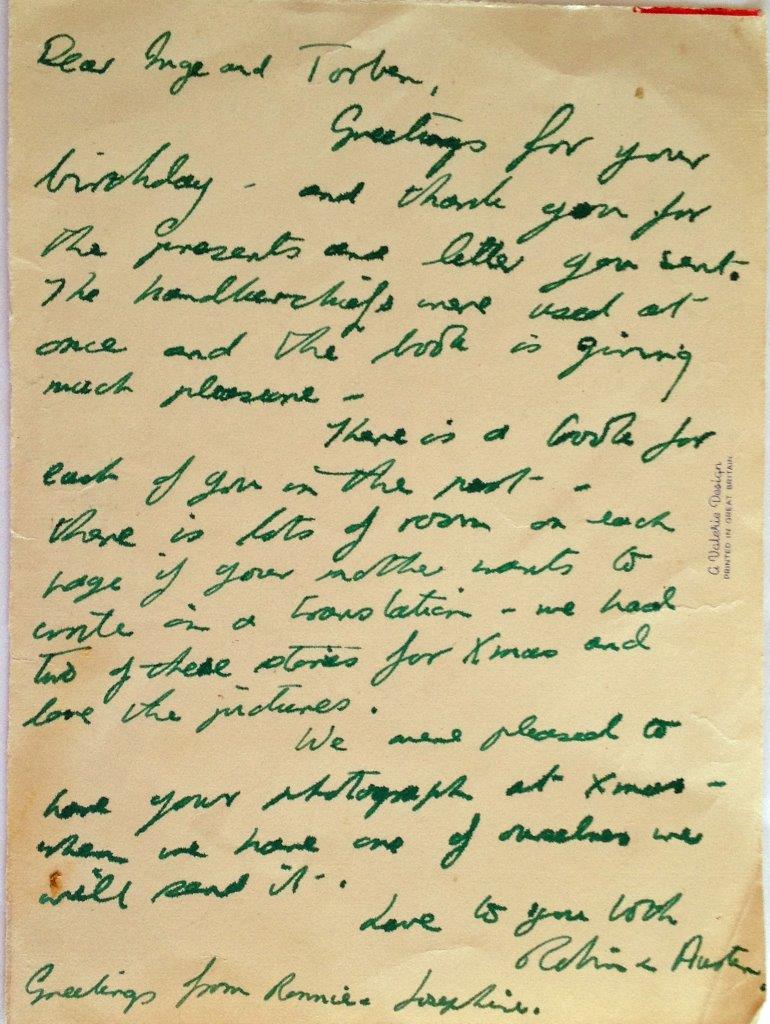 Dear Inge and Torben,
Greetings for your
birthday - and thank you for
the presents and letter you sent.
The handkerchiefs were used at
once and the book is giving
much pleasure -
There is a book for
each of you in the post -
there is lots of room on each
page if your mother wants to
write in a translation - we had
two of these stories for Xmas and
love the pictures.
We were pleased to
have your photograph at Xmas -
when we have one of ourselves we
will send it.
Love to you both
Robin & Austin.
Greetings from Ronnie & Josephine.
G Valerie Design
PRINTED IN GREAT BRITAIN